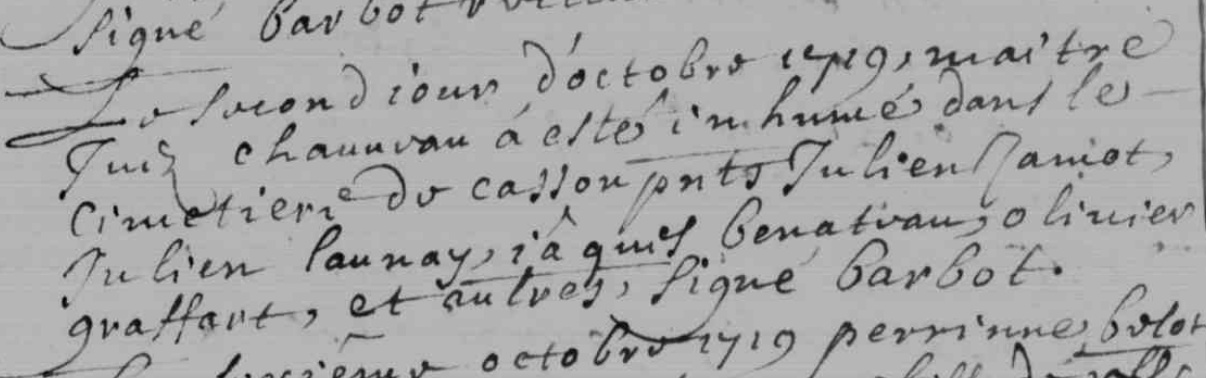 signé barbot
Le second iour d'octobre 1719, maitre
chauuvau á esté inhumé dans le
Cimetiere de casson pnts Julien Janiot,
Julien launay, iâques benatvau, oliuier
graffart, et autres, signé barbot.
octobre 1719 perrinne belot